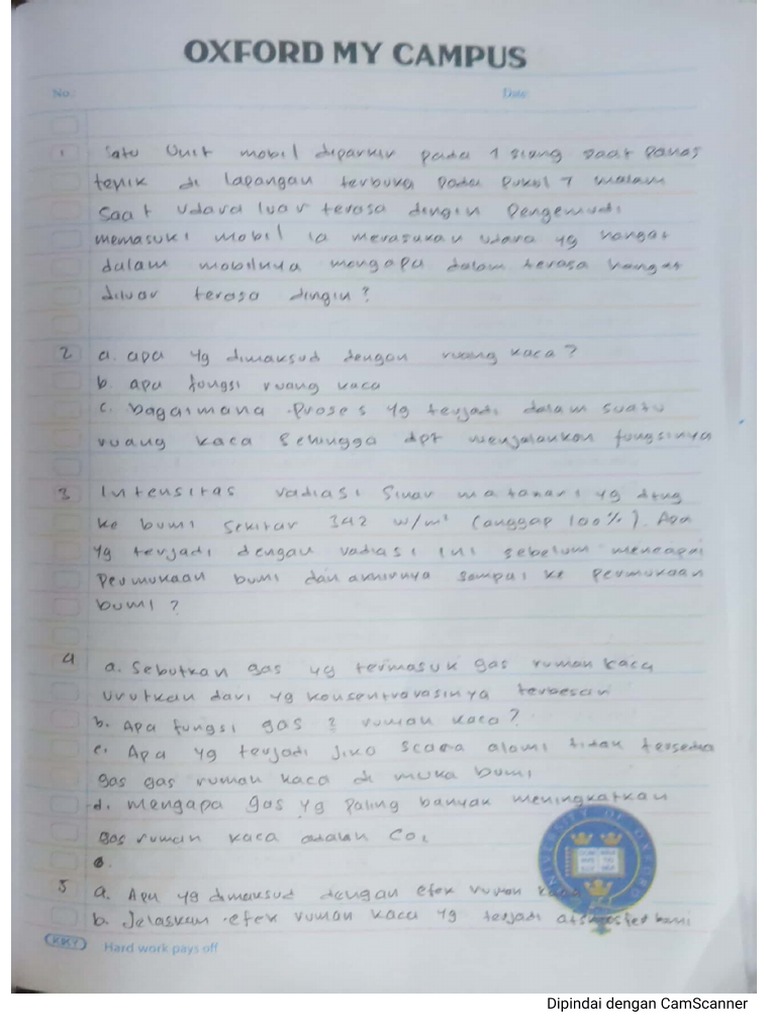 OXFORD MY CAMPUS
No.: Date:
1 Satu Unit mobil diparkir pada 1 siang saat panas
terik di lapangan terbuka pada pukul 7 malam
saat udara luar terasa dingin pengemudi
memasuki mobil ia merasakan udara yg hangat
dalam mobilnya mengapa dalam terasa hangat
diluar terasa dingin?
2 a. apa yg dimaksud dengan ruang kaca?
b. apa fungsi ruang kaca
c. bagaimana proses yg terjadi dalam suatu
ruang kaca sehingga dpt menjalankan fungsinya
3 Intensitas radiasi sinar matahari yg dtng
ke bumi sekitar 342 w/m² (anggap 100%). Apa
yg terjadi dengan radiasi ini sebelum mencapai
permukaan bumi dan akhirnya sampai ke permukaan
bumi?
4 a. Sebutkan gas yg termasuk gas rumah kaca
urutkan dari yg konsentrarasinya terbesar
b. Apa fungsi gas 2 rumah kaca?
c. Apa yg terjadi jika secara alami tidak tersedia
gas gas rumah kaca di muka bumi
d. mengapa gas yg paling banyak meningkatkan
gas rumah kaca adalah CO₂
5 a. Apa yg dimaksud dengan efek rumah kaca
b. Jelaskan efek rumah kaca yg terjadi bumi
UNIVERSITY OF OXFORD
KKY Hard work pays off
Dipindai dengan CamScanner